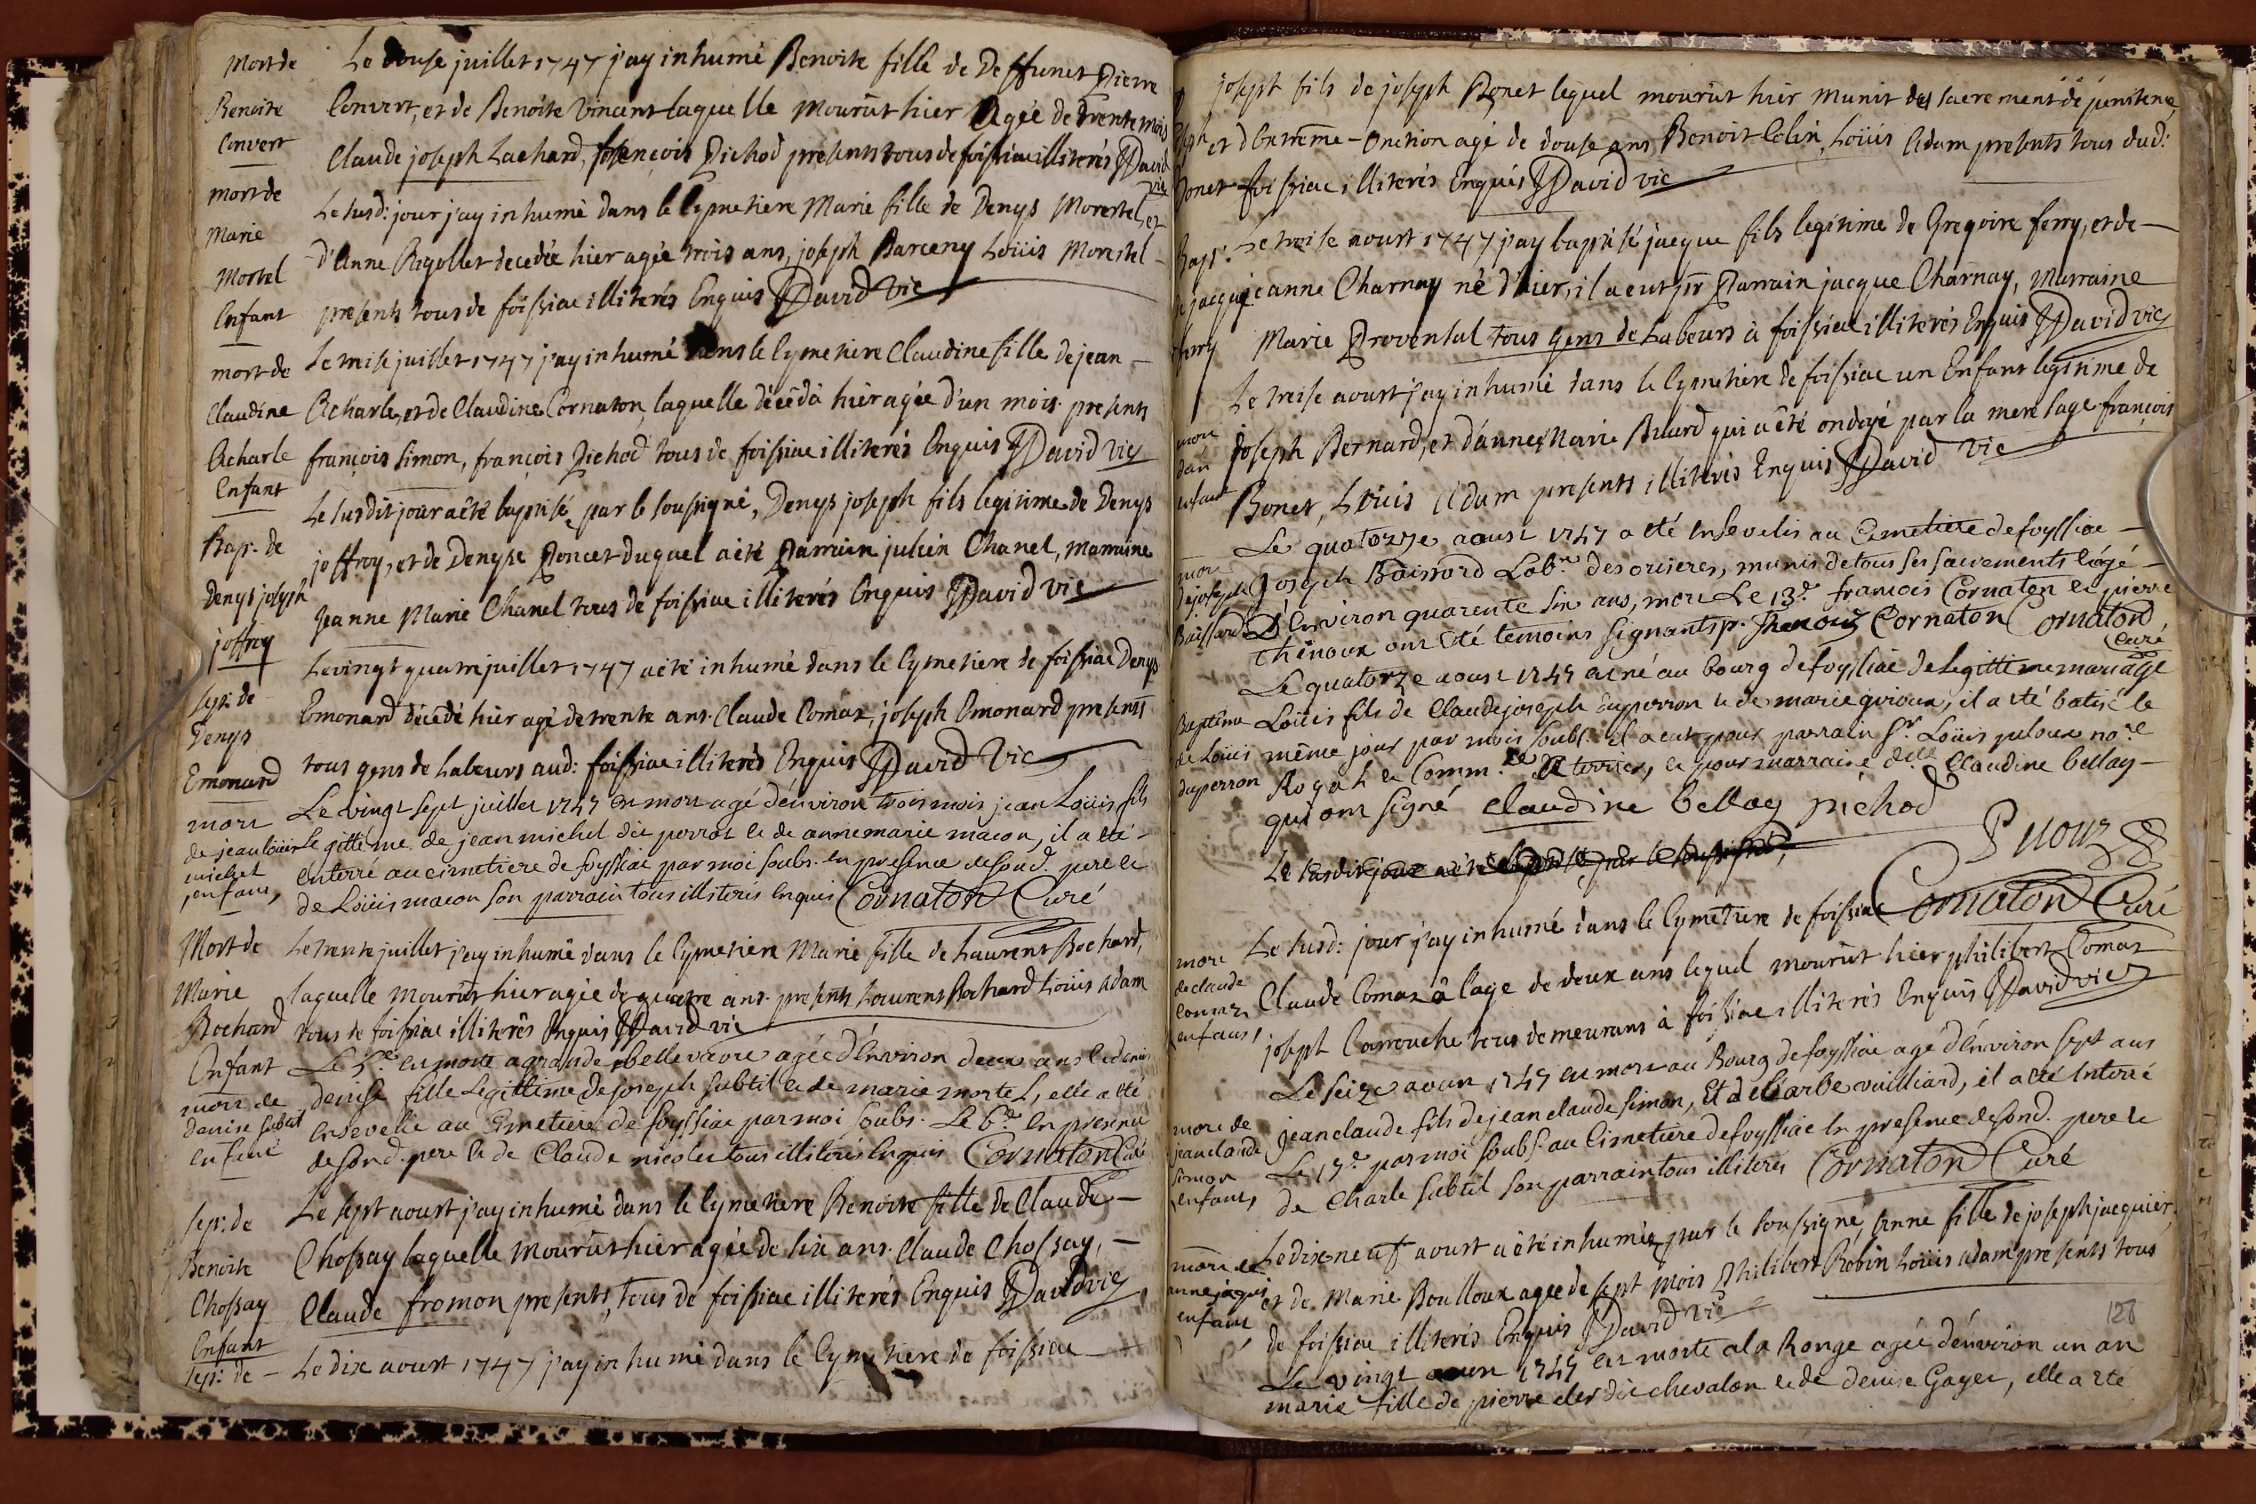 Mort de
Benoite
Convert
Le douse juillet 1747 j'ay inhumé Benoite fille de Deffunct Pierre
Convert, et de Benoite Vincent laquelle mourût hier agée de trente mois
Claude joseph Lachard, françois Pichod présents tous de foissiac illiterés David
vic
mort de
Marie
Mortel
Enfant
Le susd: jour j'ay inhumé dans le Cymetiere Marie fille de Denys Morestel, et
d'Anne Rigollet decedée hier agée trois ans, joseph Barceny Loüis Morestel
presents tous de foissiac illiterés Enquis David vic
mort de
Claudine
Acharle
Enfant
Le treise juillet 1747 j'ay inhumé dans le Cymetiere Claudine fille de jean
Acharle, et de Claudine Cornaton, laquelle décédà hier agée d'un mois. presents
françois Simon, françois Pichod tous de foissiac illiterés Enquis David vic
Bap. de
Denys joseph
joffroy
Le susdit jour a été baptisé, par le soussigné, Denys joseph fils legitime de Denys
joffroy, et de Denyse Poncet duquel a été Parrain julien Chanel, marraine
Jeanne Marie Chanel tous de foissiac illiterés Enquis David vic
sep. de
Denys
Emonard
Le vingt quatre juillet 1747 a été inhumé dans le Cymetiere de foissiac Denys
Emonard décédé hier agé de trente ans. Claude Comas, joseph Emonard presents
tous gens de Labeurs aud: foissiac illiterés Enquis David Vic
mort
de jean loüis
michel
enfant,
Le vingt sept juillet 1747 est mort agé d'environ trois mois jean Loüis fils
legittime de jean michel dit perrot et de anne marie macon, il a été
enterré au cimetiere de foyssiac par moi soubs. en presence desond. pere et
de Loüis macon son parrain tous illiterés enquis Cornaton Curé
Mort de
Marie
Bochard
Enfant
Le trente juillet j'ay inhumé dans le Cymetiere Marie fille de Laurent Bochard,
laquelle mourût hier agée de quatre ans. presents Laurent Bochard Loüis Adam
tous de foissiac illiterés Enquis David vic
mort de
denise subtil
enfant
Le 5.e est morte a grande bellevavre agée d'environ deux ans et demi
denise fille Legittime de joseph subtil et de marie mortel, elle a été
ensevelie au Cimetiere de foyssiac par moi soubs. Le 6.e en presence
desond. pere et de Claude nicolet tous illiterés enquis Cornaton Curé
sep: de
Benoite
Chossay
Enfant
Le sept aoust j'ay inhumé dans le Cymetiere Benoite fille de Claude
Chossay laquelle mourût hier agée de six ans. Claude Chossay,
Claude fromon presents, tous de foissiac illiterés Enquis David vic
sep: de
Le dix aoust 1747 j'ay inhumé dans le Cymetiere de foissiac
joseph fils de joseph Bonet lequel mourût hier munit des sacrement de penitence,
et d'Extreme-Onction agé de douse ans, Benoit Colin, Loüis Adam presents tous dud:
foissiac, illiterés Enquis David vic
Bonet
Bap:
de jacque
ferry
Le treise aoust 1747 j'ay baptisé jacque fils legitime de Gregoire ferry, et de
jeanne Charnay né d'hier, il a eut pr Parrain jacque Charnay, Marraine
Marie Provensal tous gens de Labeurs à foissiac illiterés Enquis David vic
mort
d'un
enfant
Le treise aoust j'ay inhumé dans le Cymetiere de foissiac un Enfant legitime de
joseph Bernard, et d'anne Marie Buard qui a été ondoyé par la mere sage françois
Bonet, Loüis Adam presents illiterés Enquis David vic
mort
de joseph
Boissard
Le quatorze aoust 1747 a été ensevelis au Cimetiere de foyssiac
joseph Boissord Lab.r des orieres, munis de tous ses sacrements l'agé
D'environ quarente six ans, mort Le 13.e francois Cornaton et pierre
thenoux ont été temoins signants p. thenoux Cornaton Cornaton
Curé
Baptême
de Loüis
duperron
Le quatorze aoust 1747 est né au bourg de foyssiac de Legittime mariage
Loüis fils de Claude joseph duperron et de marie gvioux, il a été batisé le
même jour par mois soubs. il a eut pour parrain S.r Loüis puloux no.re
Royal et Comm.re de terrier, et pour marraine d.lle Claudine bellay
qui ont signé claudine bellay pichod
Puoux
Le susdit jour a été baptisé par le soussigné,
Cornaton Curé
mort
de claude
comaz
enfant,
Le susd: jour j'ay inhumé dans le Cymetiere de foissiac
Claude Comas â l'age de deux ans lequel mourût hier philibert Comas
joseph Carrouche tous demeurans à foissiac illiterés Enquis David vic
mort de
jean claude
simon
enfant,
Le seize aoust 1747 est mort au Bourg de foyssiac agé d'environ sept ans
jean claude fils de jean claude simon, Et de Barbe vuilliard, il a été enterré
Le 17.e par moi soubs. au Cimetiere de foyssiac en presence desond. pere et
de Charle subtil son parrain tous illiterés Cornaton Curé
mort de
anne jaquier
enfant
Le dix neuf aoust a été inhumée, par le soussigné, anne fille de joseph jacquier,
et de Marie Boulloux agée de sept mois Philibert Robin Loüis adam presents tous
de foissiac illiterés Enquis David vic
128
Le vingt aoust 1747 est morte a la Ronge agée d'environ un an
marie fille de pierre clerc dit chevalon et de denise Gayet, elle a été